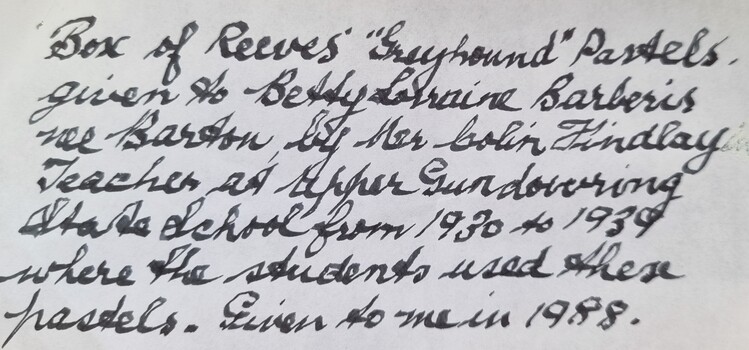 Box of Reeves "Greyhound" Pastels.
given to Betty Lorraine Barberis
nee Barton, by Mer Colin Findlay
Teacher at Upper Gundowring
State School from 1930 to 1939
where the students used these
pastels. Given to me in 1988.